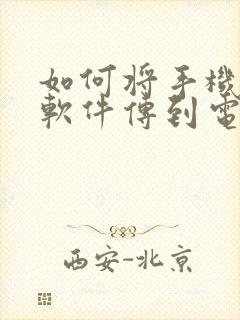 如何将手機
軟件傳到電
西安-北京